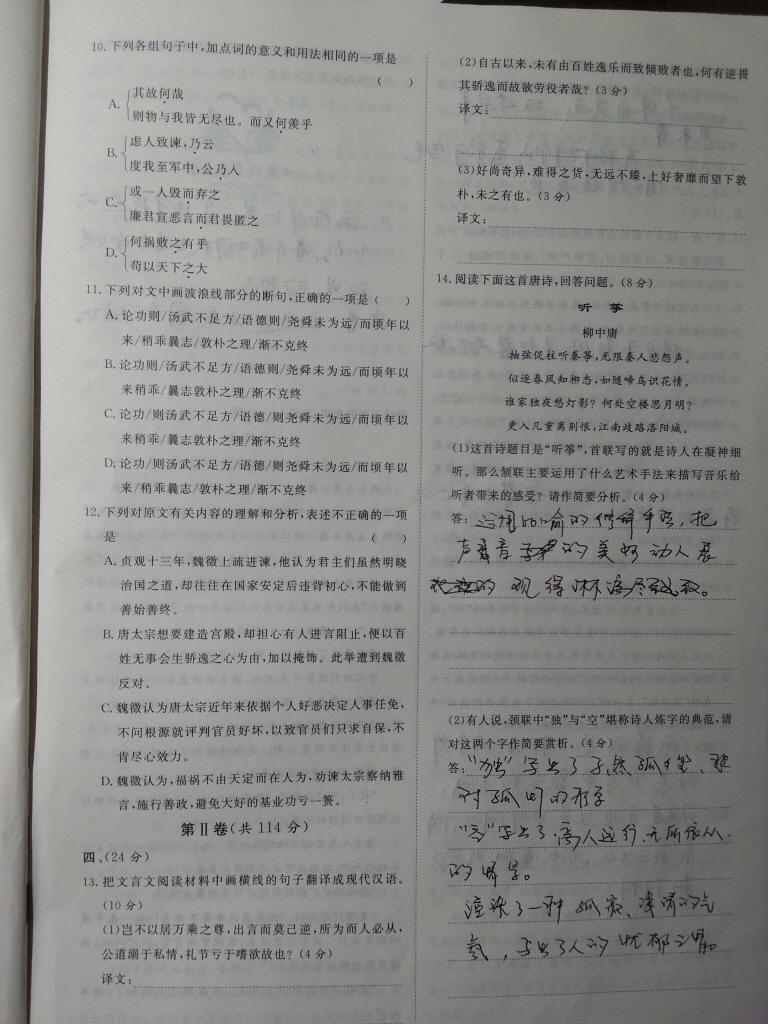 10.下列各组句子中,加点词的意义和用法相同的一项是
(    )
A.
其故何哉
则物与我皆无尽也。而又何羡乎
B.
虑人致谏,乃云
度我至军中,公乃入
C.
或一人毁而弃之
廉君宣恶言而君畏匿之
D.
何祸败之有乎
苟以天下之大
11.下列对文中画波浪线部分的断句,正确的一项是(    )
A.论功则/汤武不足方/语德则/尧舜未为远/而顷年以
来/稍乖/曩志/敦朴之理/渐不克终
B.论功则/汤武不足方/语德则/尧舜未为远/而顷年以
来稍乖/曩志敦朴之理/渐不克终
C.论功/则汤武不足方/语德/则尧舜未为远/而顷年以
来稍乖/曩志敦朴之理/渐不克终
D.论功/则汤武不足方/语德/则尧舜未为远/而顷年以
来/稍乖曩志/敦朴之理/渐不克终
12.下列对原文有关内容的理解和分析,表述不正确的一项
是
(    )
A.贞观十三年,魏徵上疏进谏,他认为君主们虽然明晓
治国之道,却往往在国家安定后违背初心,不能做到
善始善终。
B.唐太宗想要建造宫殿,却担心有人进言阻止,便以百
姓无事会生骄逸之心为由,加以掩饰。此举遭到魏徵
反对。
C.魏徵认为唐太宗近年来依据个人好恶决定人事任免,
不问根源就评判官员好坏,以致官员们只求自保,不
肯尽心效力。
D.魏徵认为,福祸不由天定而在人为,劝谏太宗察纳雅
言,施行善政,避免大好的基业功亏一篑。
第Ⅱ卷(共 114 分)
四、(24 分)
13.把文言文阅读材料中画横线的句子翻译成现代汉语。
(10 分)
(1)岂不以居万乘之尊,出言而莫己逆,所为而人必从,
公道溺于私情,礼节亏于嗜欲故也?(4 分)
译文:
(2)自古以来,未有由百姓逸乐而致倾败者也,何有逆畏
其骄逸而故欲劳役者哉?(3 分)
译文:
(3)好尚奇异,难得之货,无远不臻,上好奢靡而望下敦
朴,未之有也。(3 分)
译文:
14.阅读下面这首唐诗,回答问题。(8 分)
听 筝
柳中庸
抽弦促柱听秦筝,无限秦人悲怨声。
似逐春风知柳态,如随啼鸟识花情。
谁家独夜愁灯影?何处空楼思月明?
更入几重离别恨,江南歧路洛阳城。
(1)这首诗题目是“听筝”,首联写的就是诗人在凝神细
听。那么颔联主要运用了什么艺术手法来描写音乐给
听者带来的感受?请作简要分析。(4 分)
答:运用比喻的修辞手法,把
声音的美好动人展
的
(2)有人说,颈联中“独”与“空”堪称诗人炼字的典范,请
对这两个字作简要赏析。(4 分)
答:“独”写出了孑然孤
对孤
“空”写出了离人远行,无所依从
的情景。
渲染了一种孤寂、凄清的气
氛,写出了人的忧郁之